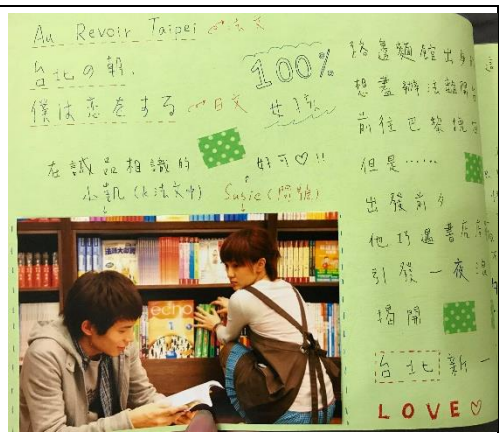 Au Revoir Taipei 法文
台北の朝、
僕は恋をする 日文
100%
女孩
在誠品相識的 好可♡!!
小凱 Susie
echo
路邊麵館出身
想盡辦法離開
前往巴黎
但是……
出發前夕
他巧遇書店
引發一夜浪
揭開
台北 新一
LOVE♡